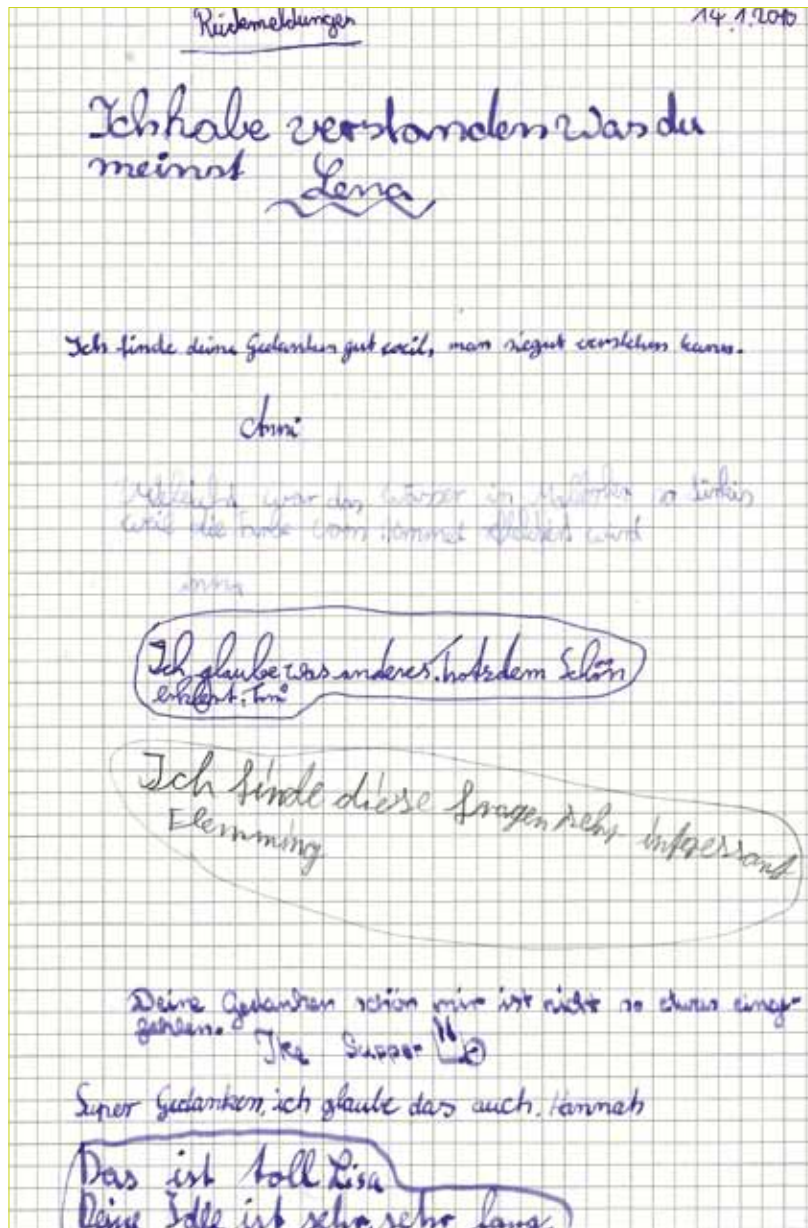 Rückmeldungen 14.1.2010
Ich habe verstanden was du
meinst Lena
Ich finde deine Gedanken gut weil, man sie gut verstehen kann.
Anni
war das Wasser in so
weil die Farbe vom wird
Anna
Ich glaube was anderes. trotzdem Schön
erklert.
Ich finde diese fragen sehr interessant
Flemming
Deine Gedanken schön mir ist nicht so etwas einge-
fahlen.
Ike Supper
Super Gedanken, ich glaube das auch. Hannah
Das ist toll Lisa
Deine Idee ist sehr sehr lang